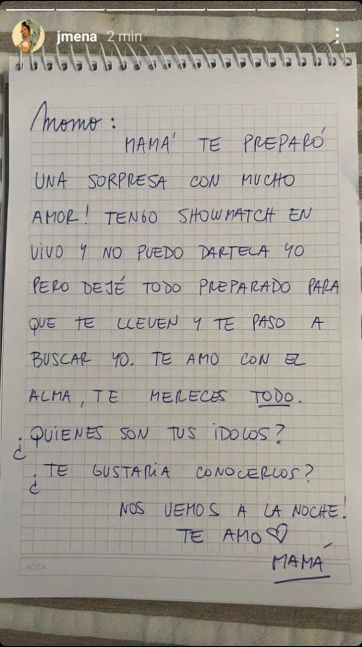 jmena 2 min
Momo:
MAMÁ TE PREPARÓ
UNA SORPRESA CON MUCHO
AMOR! TENGO SHOWMATCH EN
VIVO Y NO PUEDO DARTELA YO
PERO DEJÉ TODO PREPARADO PARA
QUE TE LLEVEN Y TE PASO A
BUSCAR YO. TE AMO CON EL
ALMA, TE MERECES TODO.
¿QUIENES SON TUS IDOLOS?
¿TE GUSTARIA CONOCERLOS?
NOS VEMOS A LA NOCHE!
TE AMO♡
MAMÁ
NOTA